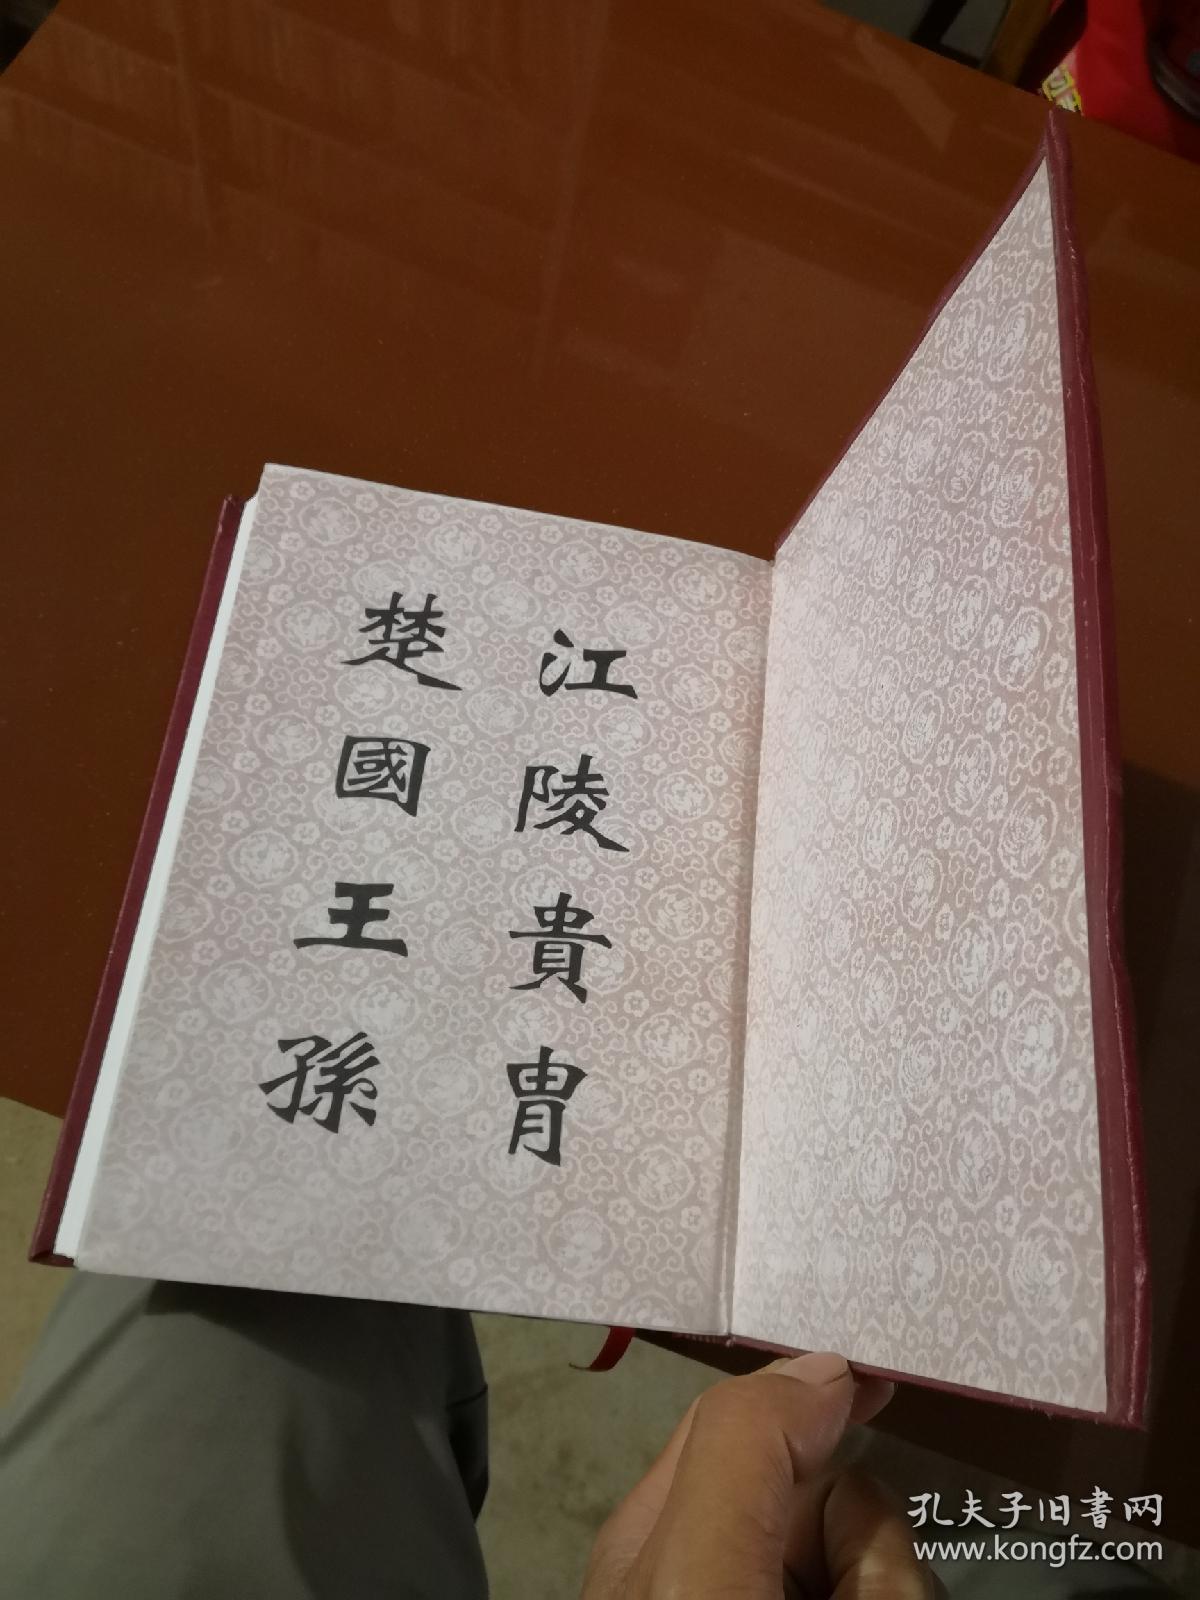 江陵貴胄
楚國王孫
孔夫子旧書网
www.kongfz.com